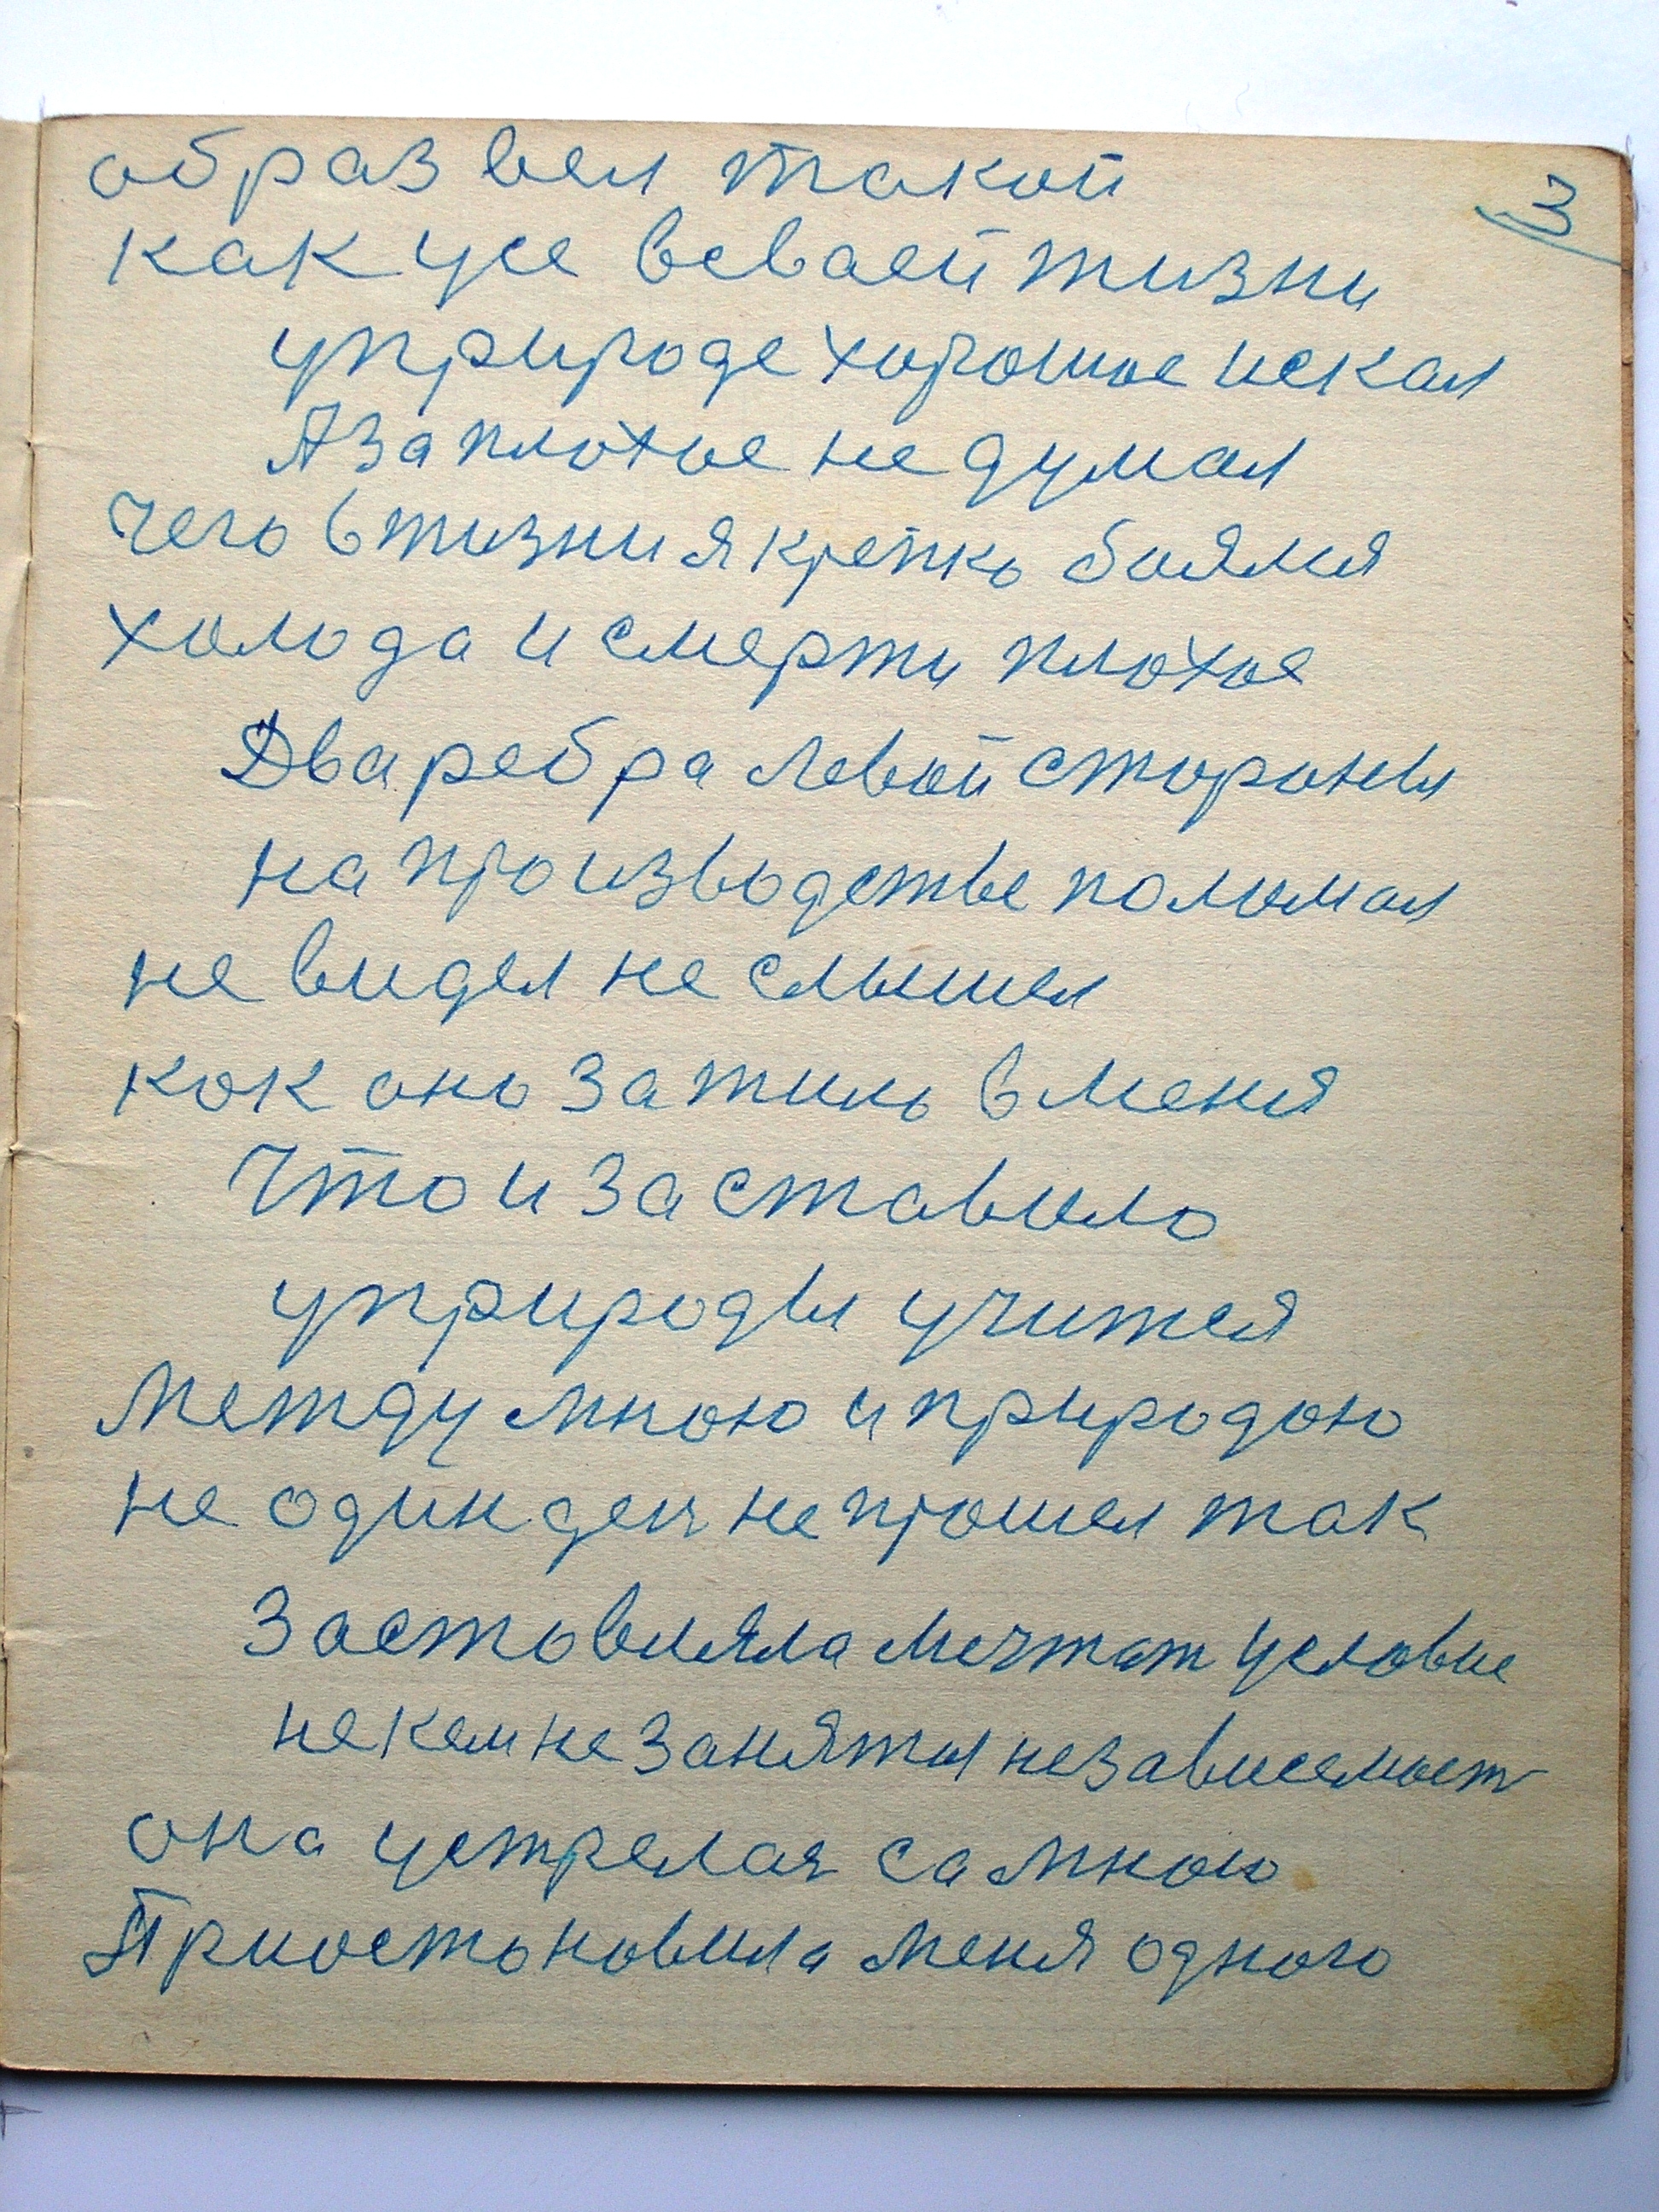 3
образ вел такой
как усе всваей жизни
уприроде хорошое искал
А за плохое не думал
чего в жизни я крепко боялся
холода и смерти плохое
Два ребра левой стороны
на производстве поломал
не видел не слышел
кок оно зажило в меня
Что и заставило
уприроды учится
между мною и природою
не один ден не прошел так
Застовляла мечтат условие
не кем не заняты независемост
она устрелас самною
Приостоновила меня одного